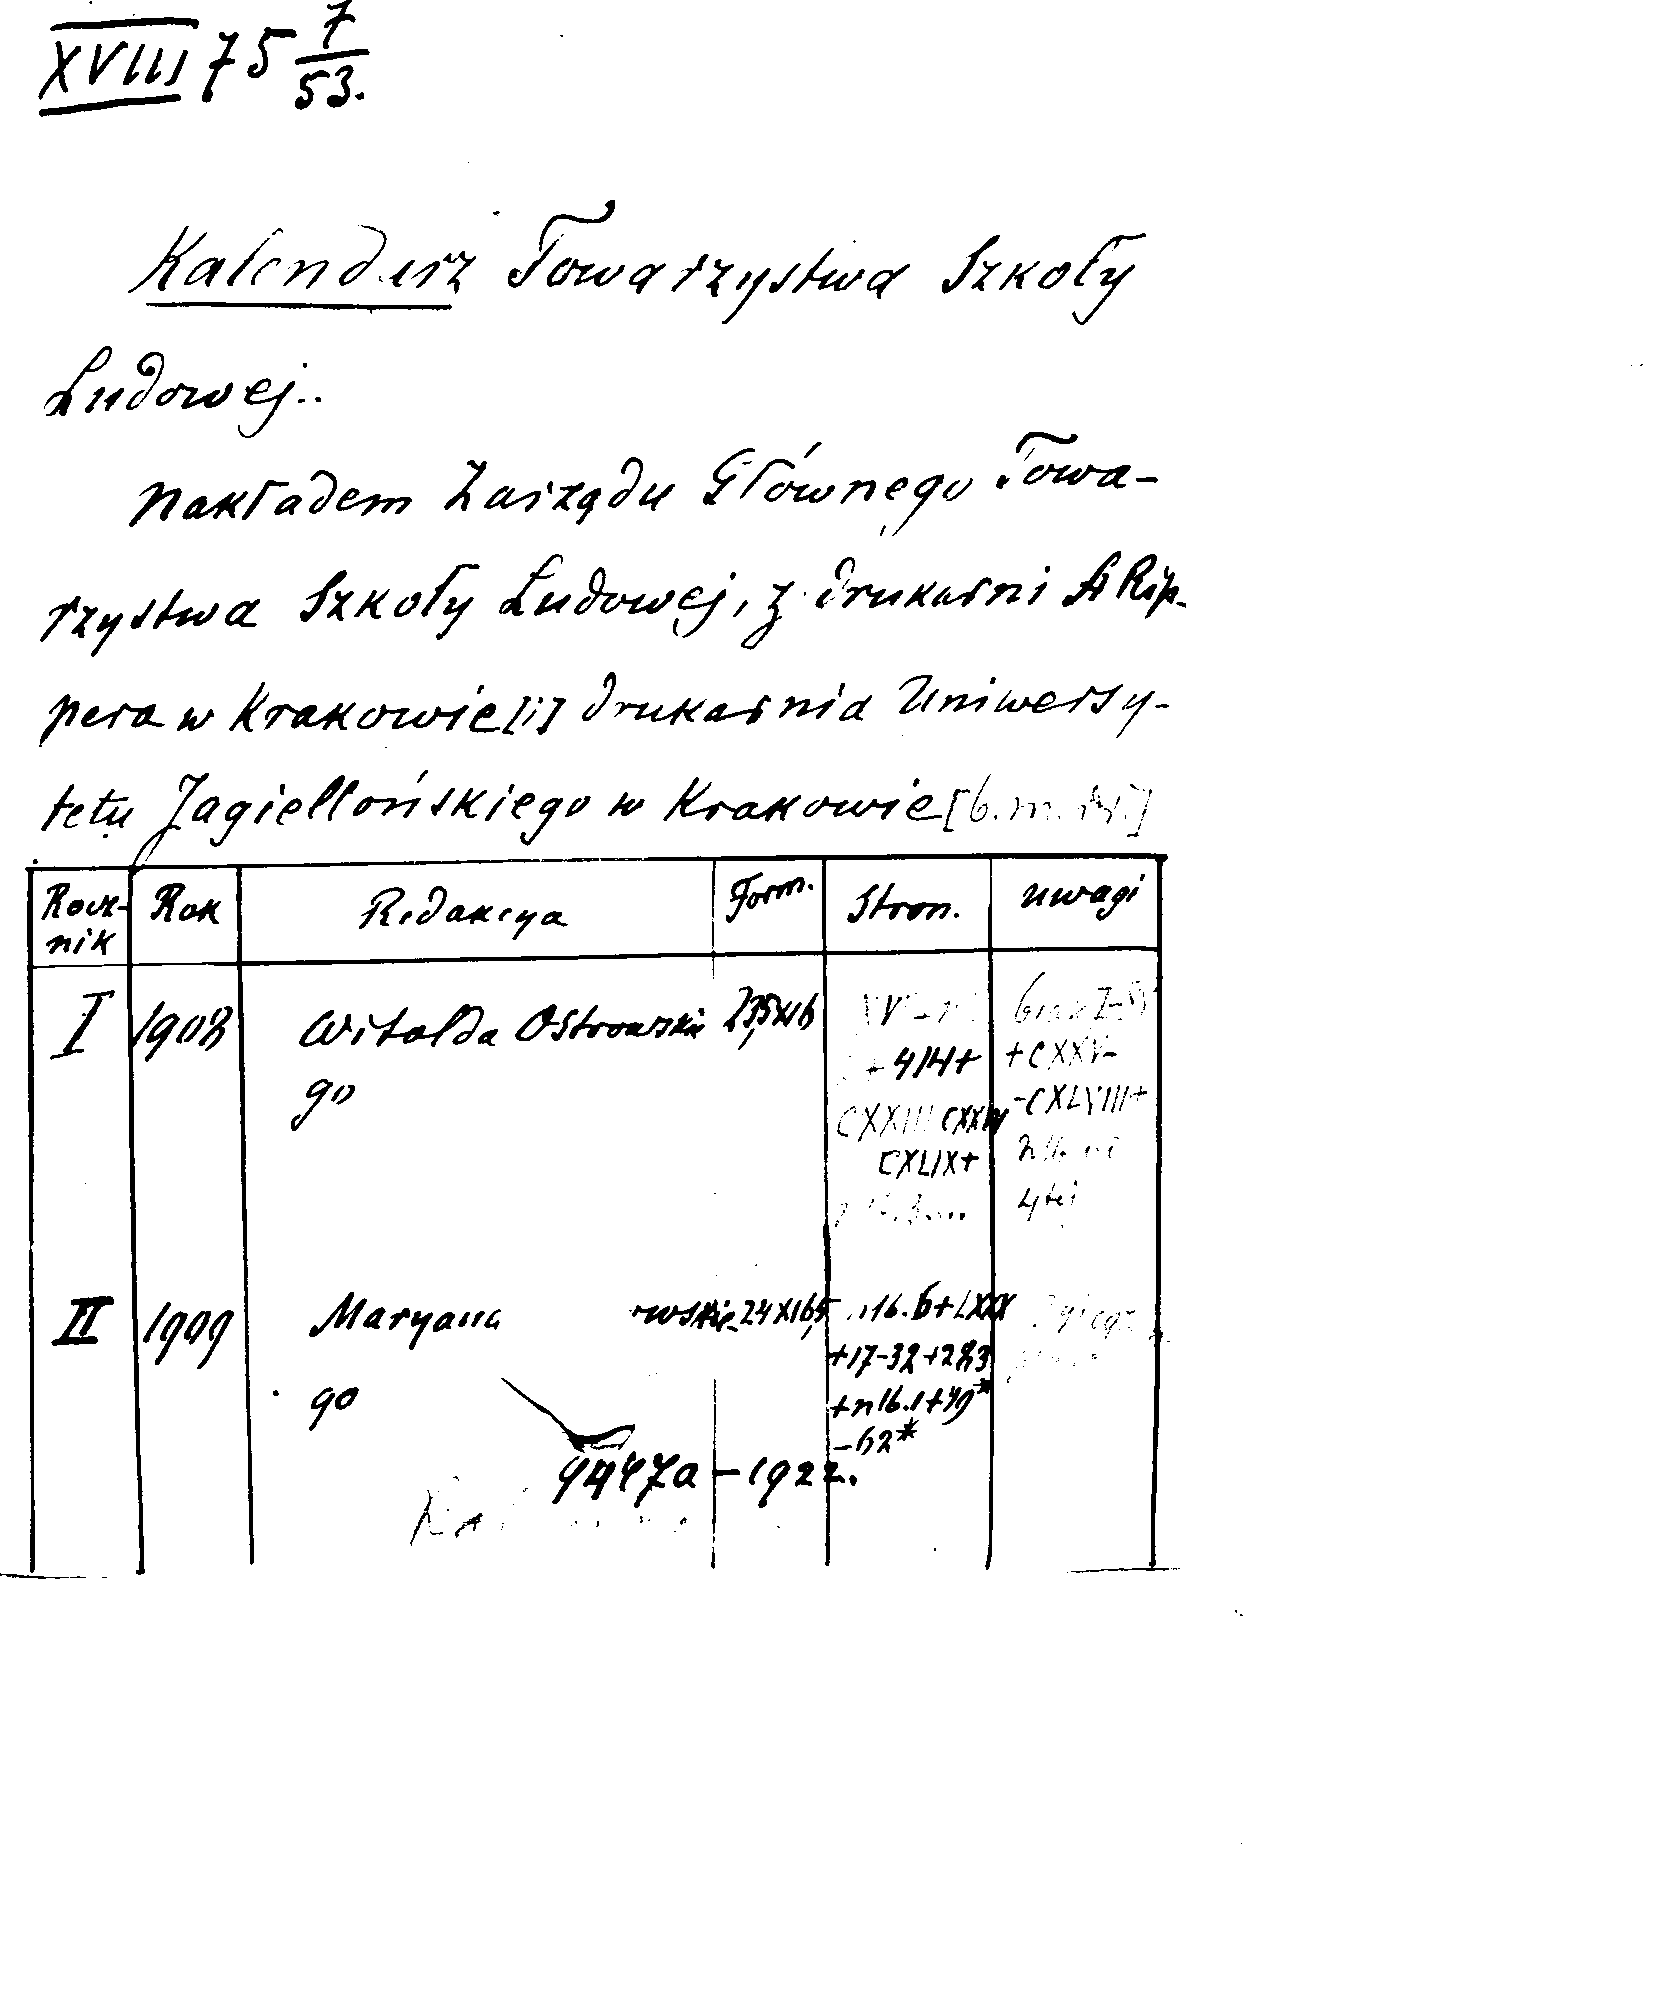 XVIII 75 7/53.
Kalendarz Towarzystwa Szkoły
Ludowej..
Nakładem Zarządu Głównego Towa-
rzystwa Szkoły Ludowej, z drukarni A Rip-
pera w Krakowie [i] drukarnia Uniwersy-
tetu Jagiellońskiego w Krakowie [b.m.
Rocz- Rok Redakcya Form. Stron. Uwagi
nik
I 1908 Witolda Ostrowskie 23,5x16
+ 414+ +CXXV-
go CXXIII CXXIV -CXLVIII+
CXLIX+
4tej
II 1909 Maryana rwskie- 24x16,5 n16.6+LXXX
+17-32+283
go +n16.1+49*
-62*
9447a - 1922.